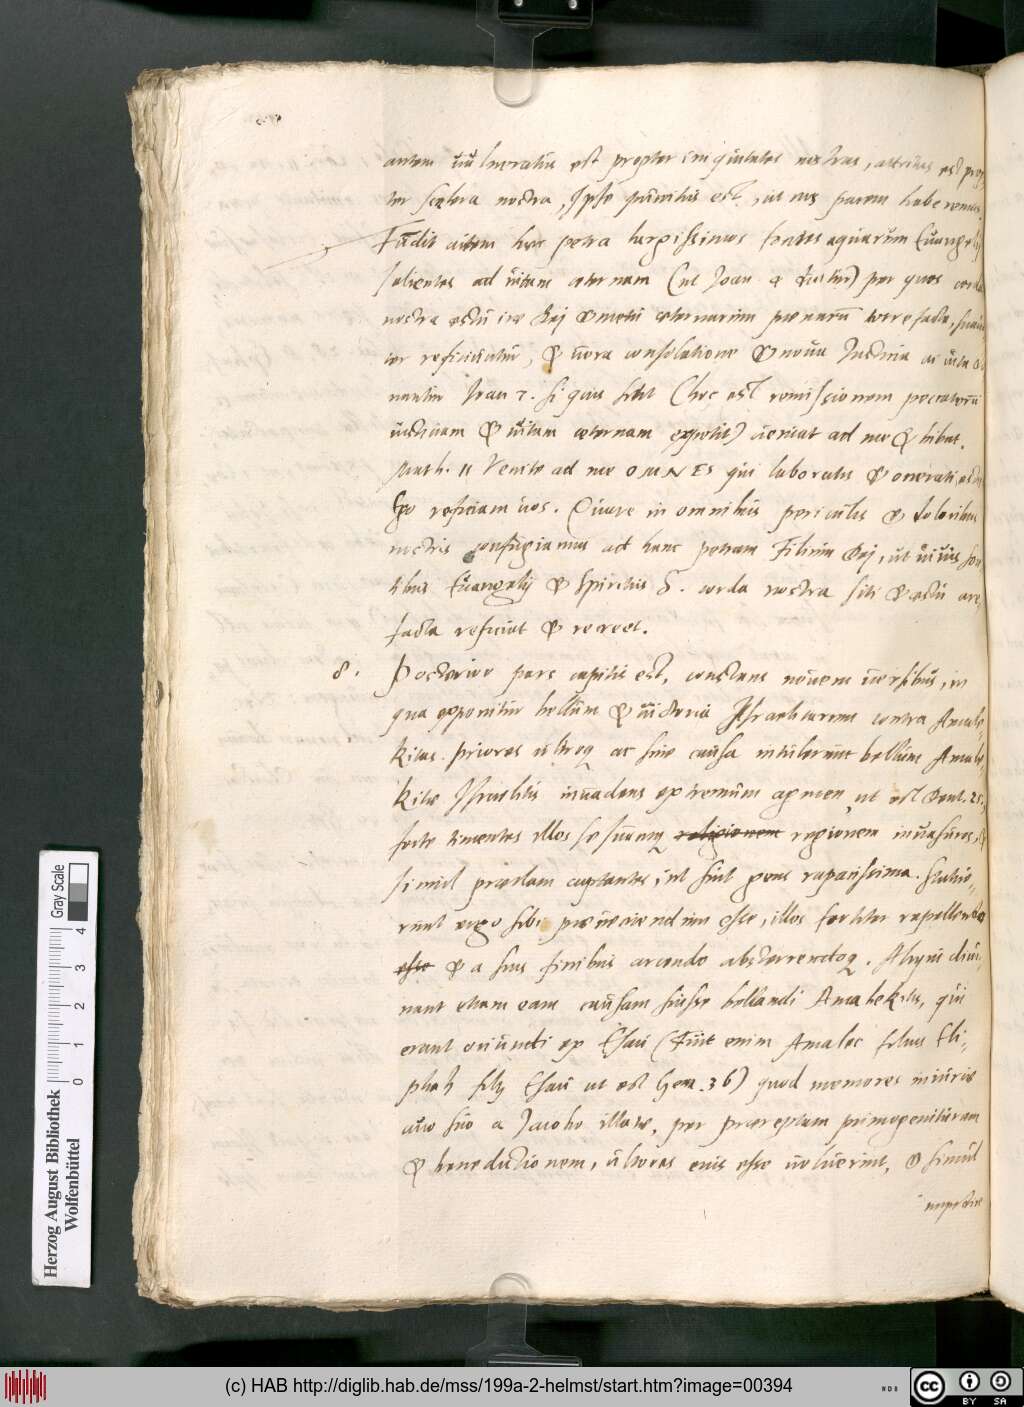 autem vulneratus est propter iniquitates nostras, attritus est prop,
ter scelera nostra, Ipse punitus est, ut nos pacem haberemus.
Fudit autem haec petra largissimos fontes aquarum Euangelij
salientes ad uitam aeternam (ut Joan 4 dicitur) per quos corda
nostra aestu irae Dej & metu aeternarum poenarum torrefacta, suaui
ter reficiuntur, & uera consolatione & noua Justitia ac uita
nantur Joan 7. si quis sitit (hoc est remissionem peccatorum
iustitiam & uitam aeternam expetit) ueniat ad me & bibat.
Math. 11 Venite ad me OMNES qui laboratis & onerati estis
Ego reficiam uos. Quare in omnibus periculis & doloribus
nostris confugiamus ad hanc petram Filium Dej, ut uiuis fon
tibus Euangelij & Spiritus S. corda nostra siti & aestu are,
facta reficiat & recreet.
8. Posterior pars capitis est, constans nouem uersibus, in
qua exponitur bellum & uictoria Israelitarum contra Amale,
kitas. priores ultroq ac sine causa intulerunt bellum Amale,
kitae Israelitis inuadens extremum agmen, ut est Deut. 25,
forte timentes illos se suamq religionem regionem inuasuros, &
simul praedam captantes, ut sunt gens rapacissima. Statue,
runt ergo sibi praeueniendum esse, illos fortiter repellendos
esse & a suis finibus arcendo absterrendoq. Aliqui diui,
nant etiam eam causam fuisse bellandi Amalekitis, qui
erant oriundi ex Esau (Fuit enim Amalec filius Eli,
phah filij Esau ut est Gen. 36) quod memores iniuriae
auo suo a Jacobo illatae, per praereptam primogenituram
& benedictionem, ultores eius esse uoluerint, & simul
Herzog August Bibliothek
Wolfenbüttel
0 1 2 3 4
Gray Scale
(c) HAB http://diglib.hab.de/mss/199a-2-helmst/start.htm?image=00394
WDB
CC BY SA